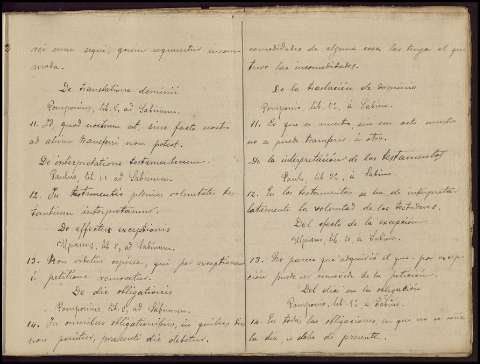 rei eum sequi, quem sequuntur incom-
moda.
De translatione dominii
Pomponius, lib. 5, ad Sabinum.
11. Id, quod nostrum est, sine facto nostro
ad alium transferri non potest.
De interpretatione testamentorum
Paulus, lib. ad Sabinum.
12. In testamentis plenius voluntates tes-
tantium interpretamur.
De effectu exceptionis
Ulpianus, lib. ad Sabinum.
13. Non videtur cepisse, qui per exceptionem
á petitione removetur.
De die obligationis
Pomponius lib. 5, ad Sabinum.
14. In omnibus obligationibus, in quibus dies
non ponitur, praesenti die debetur.
comodidades de alguna cosa las tenga el que
tuvo las incomodidades.
De la traslación de dominio
Pomponio, lib. á Sabino.
11. Lo que es nuestro, sin un acto nuestro
no se puede transferir á otro.
De la interpretación de los testamentos
Paulo, lib. á Sabino
12. En los testamentos se ha de interpretar
latamente la voluntad de los testadores.
Del efecto de la excepción
Ulpiano, lib. á Sabino.
13. No parece que adquirió el que por excep-
ción puede ser removido de la petición.
Del día en la obligación
Pomponio, lib. á Sabino.
14. En todas las obligaciones en que no se pone
el día, se debe de presente.